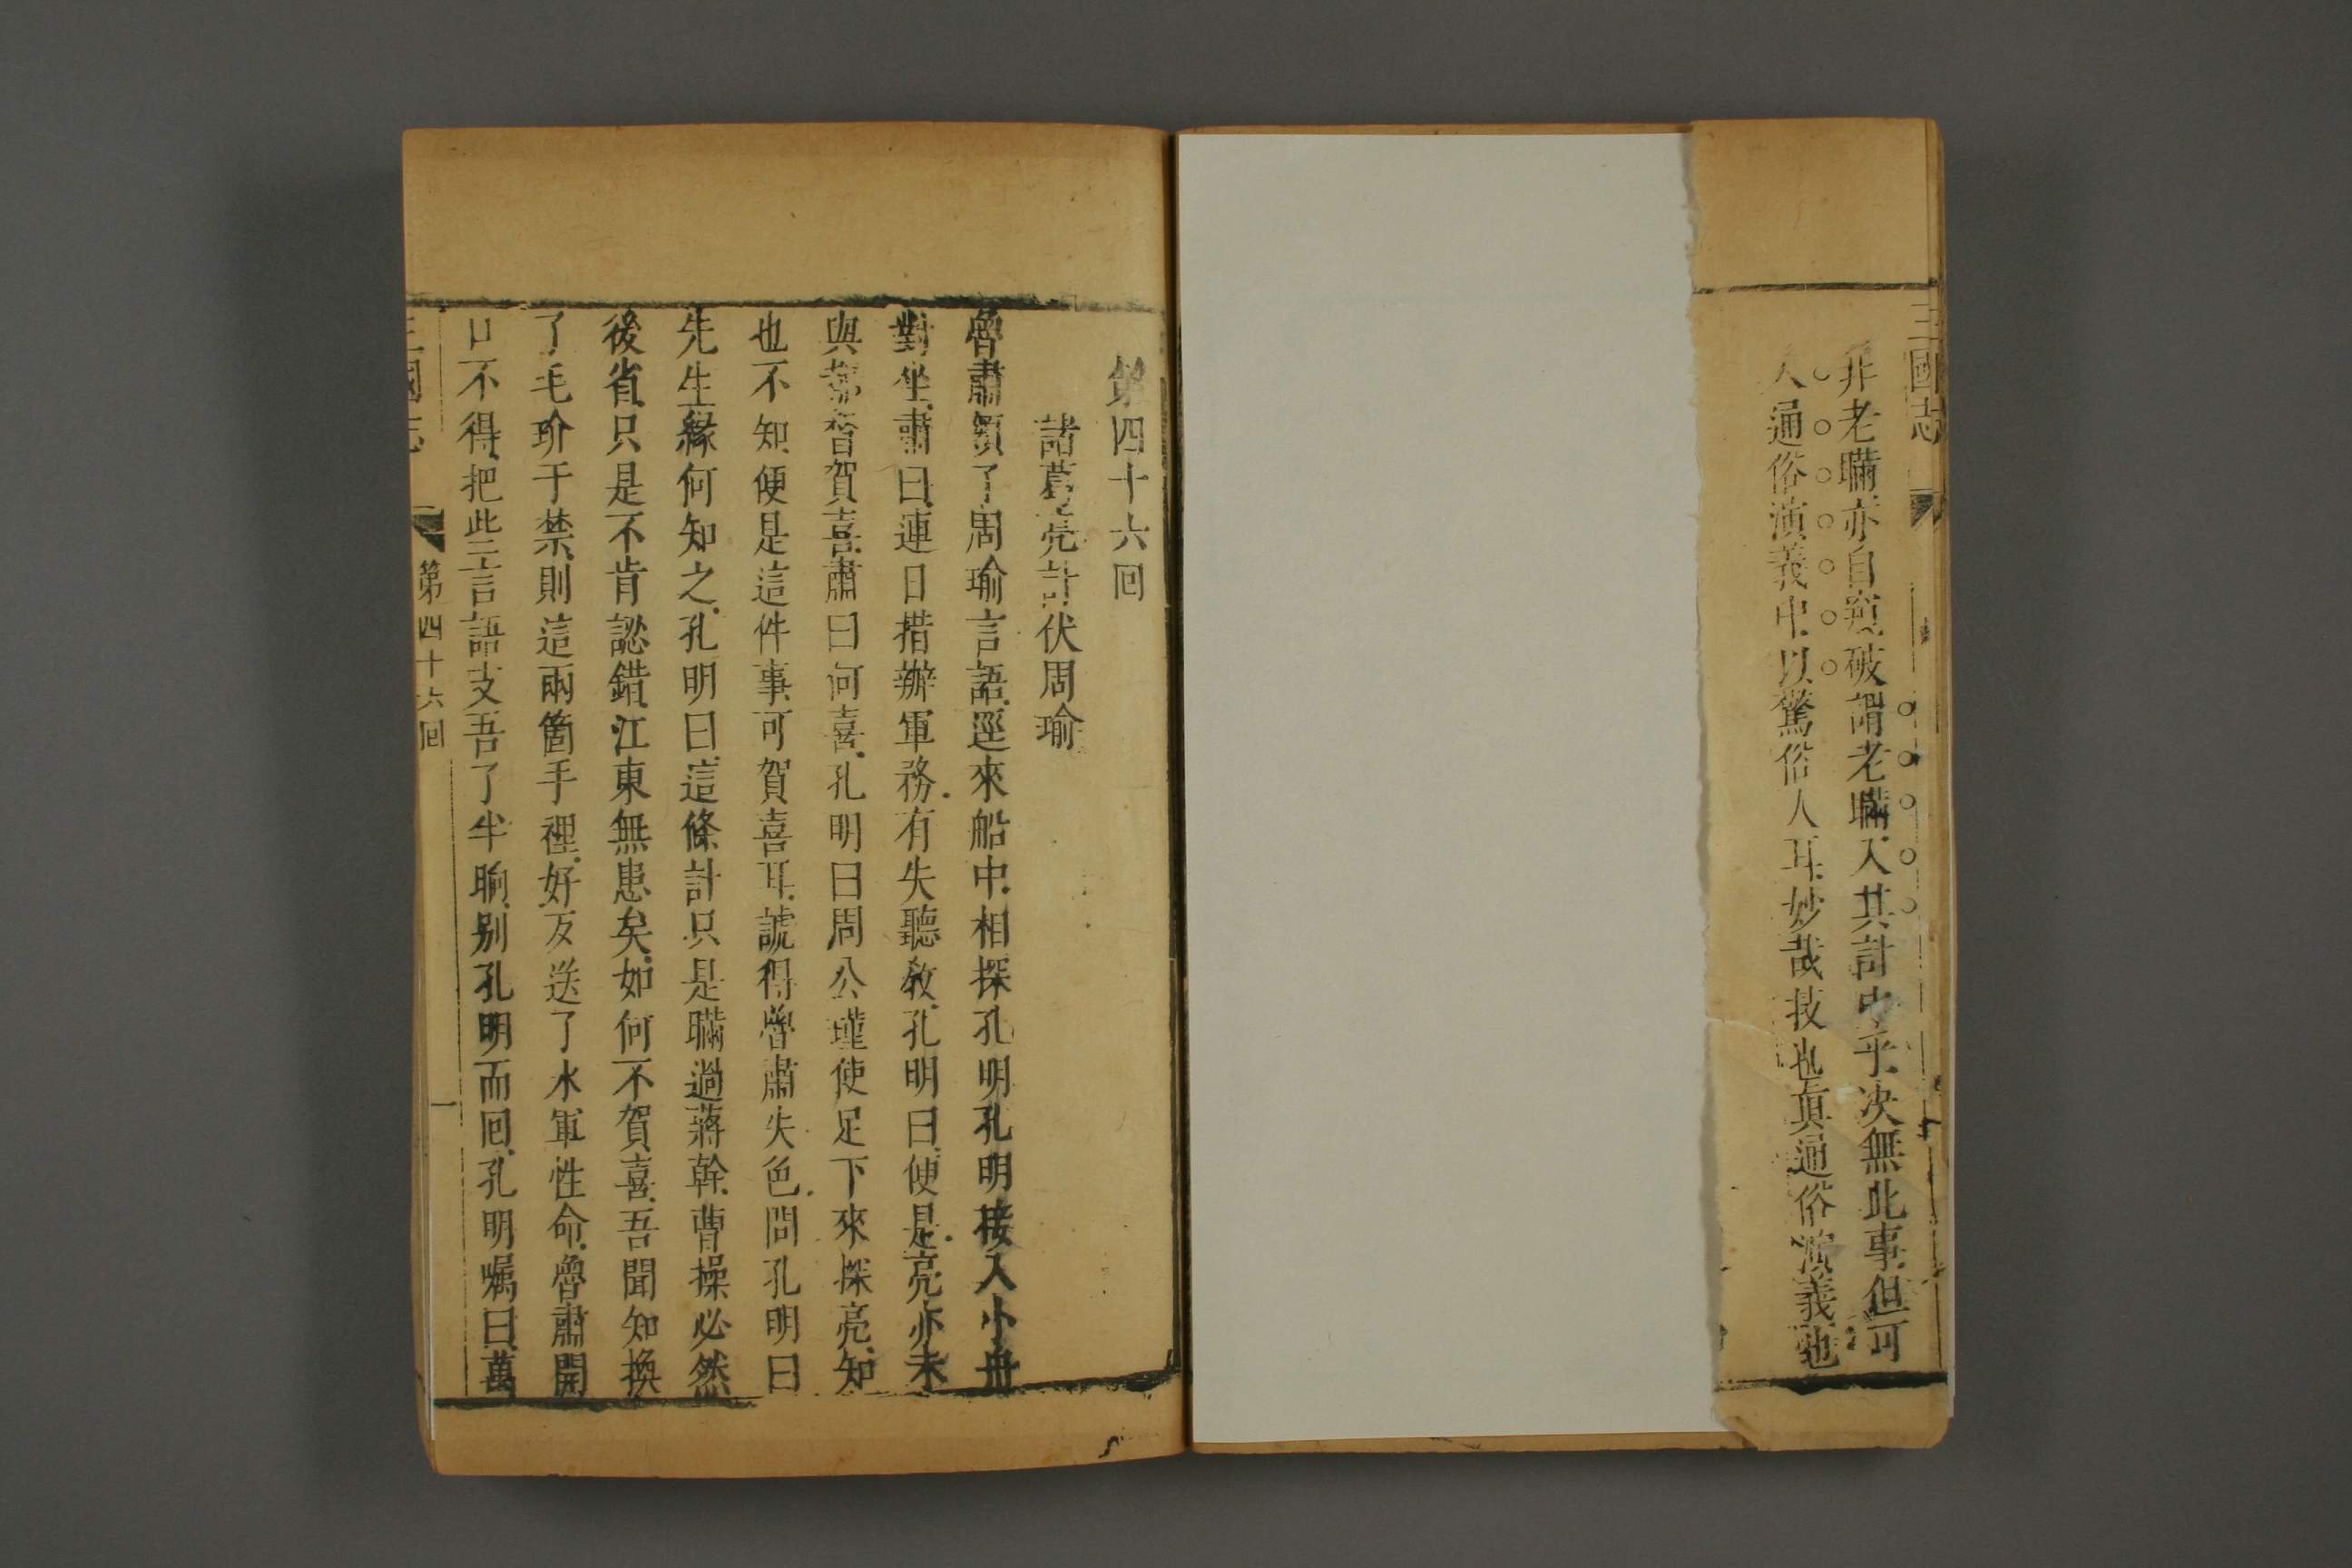 三國志
非老瞞亦自窺破謂老瞞入其計中乎决無此事但可
入通俗演義中以驚俗人耳妙哉技也真通俗演義也
第四十六回
諸葛亮計伏周瑜
魯肅領了周瑜言語逕來船中相探孔明孔明接入小舟
對坐肅曰連日措辦軍務有失聽教孔明曰便是亮亦未
與都督賀喜肅曰何喜孔明曰周公瑾使足下來探亮知
也不知便是這件事可賀喜耳諕得魯肅失色問孔明曰
先生緣何知之孔明曰這條計只是瞞過蔣幹曹操必然
後省只是不肯認錯江東無患矣如何不賀喜吾聞知換
了毛玠于禁則這兩箇手裡好歹送了水軍性命魯肅開
口不得把些言語支吾了半晌别孔明而回孔明囑曰萬
三國志
第四十六回
一